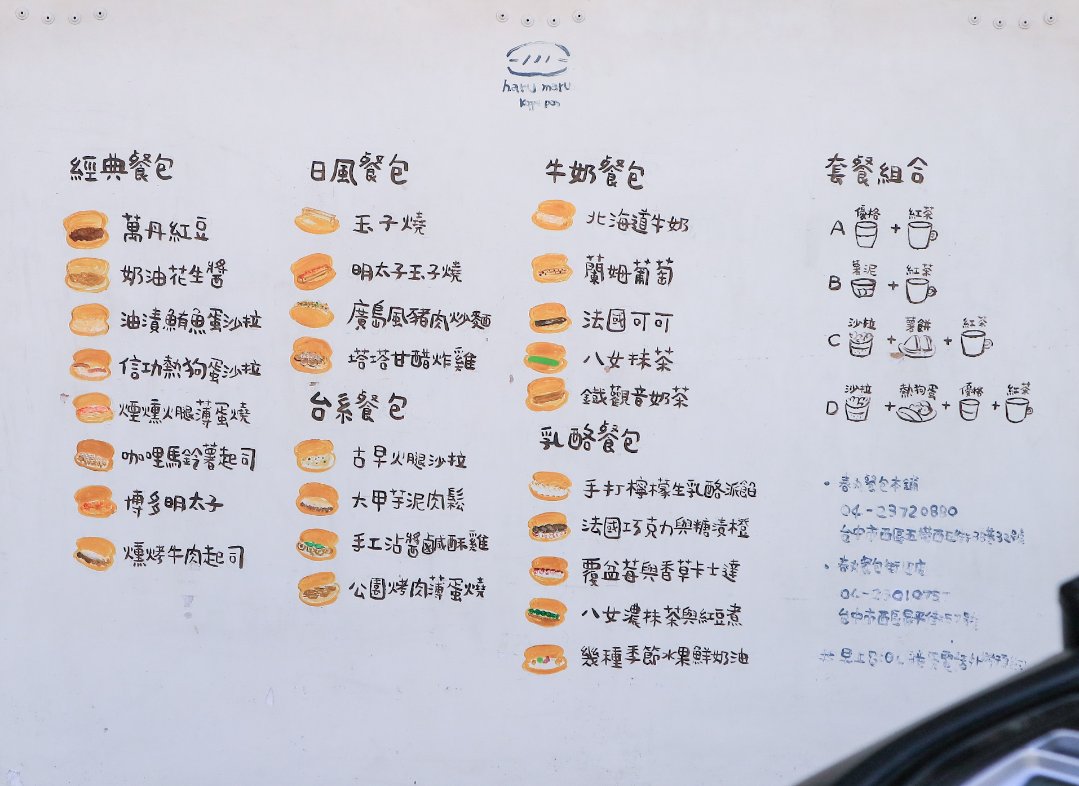 haru maru
Koppe pan
經典餐包
萬丹紅豆
奶油花生醬
油漬鮪魚蛋沙拉
信功熱狗蛋沙拉
煙燻火腿薄蛋燒
咖哩馬鈴薯起司
博多明太子
燻烤牛肉起司
日風餐包
玉子燒
明太子玉子燒
廣島風豬肉炒麵
塔塔甘醋炸雞
台系餐包
古早火腿沙拉
大甲芋泥肉鬆
手工沾醬鹹酥雞
公園烤肉薄蛋燒
牛奶餐包
北海道牛奶
蘭姆葡萄
法國可可
八女抹茶
鐵觀音奶茶
乳酪餐包
手打檸檬生乳酪派餡
法國巧克力與糖漬橙
覆盆莓與香草卡士達
八女濃抹茶與紅豆煮
幾種季節水果鮮奶油
套餐組合
A 優格 + 紅茶
B 薯泥 + 紅茶
C 沙拉 + 薯餅 + 紅茶
D 沙拉 + 熱狗蛋 + 優格 + 紅茶
春丸餐包本舖
04-23720890
台中市西區五權西
春丸餐包
台中市西區